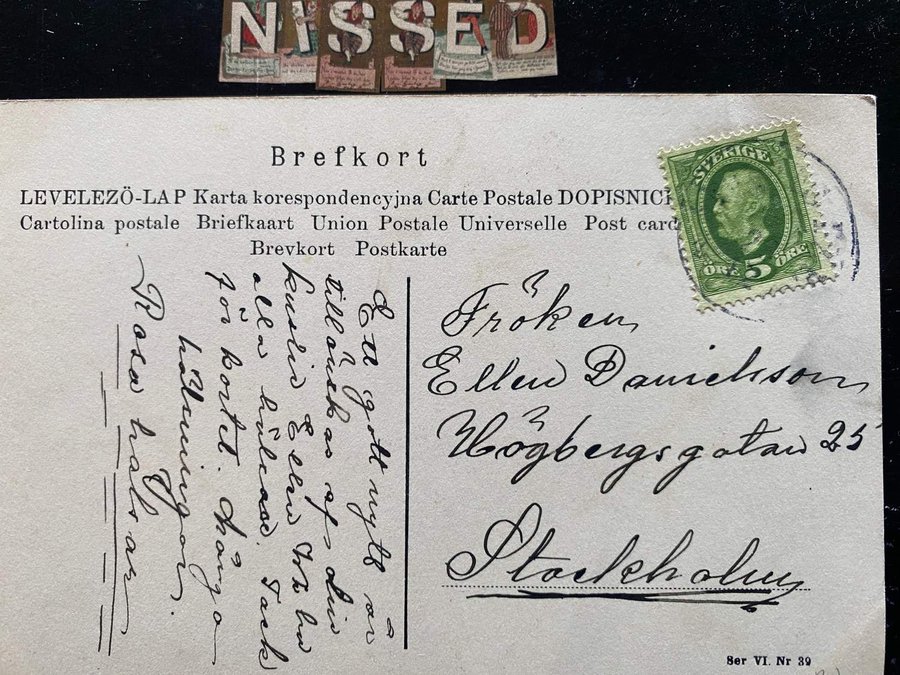 NISSED
Brefkort
LEVELEZÖ-LAP Karta korespondencyjna Carte Postale DOPISNIC
Cartolina postale Briefkaart Union Postale Universelle Post card
Brevkort Postkarte
SVERIGE
ÖRE 5 ÖRE
Fröken
Ellen Danielsson
Högbergsgatan 25
Stockholm
Ett gott nytt år
tillönskas af din
kusin Ellen
alla hälsar. Tack
för kortet. Många
hälsningar.
Rosa halsar
Ser VI. Nr 39